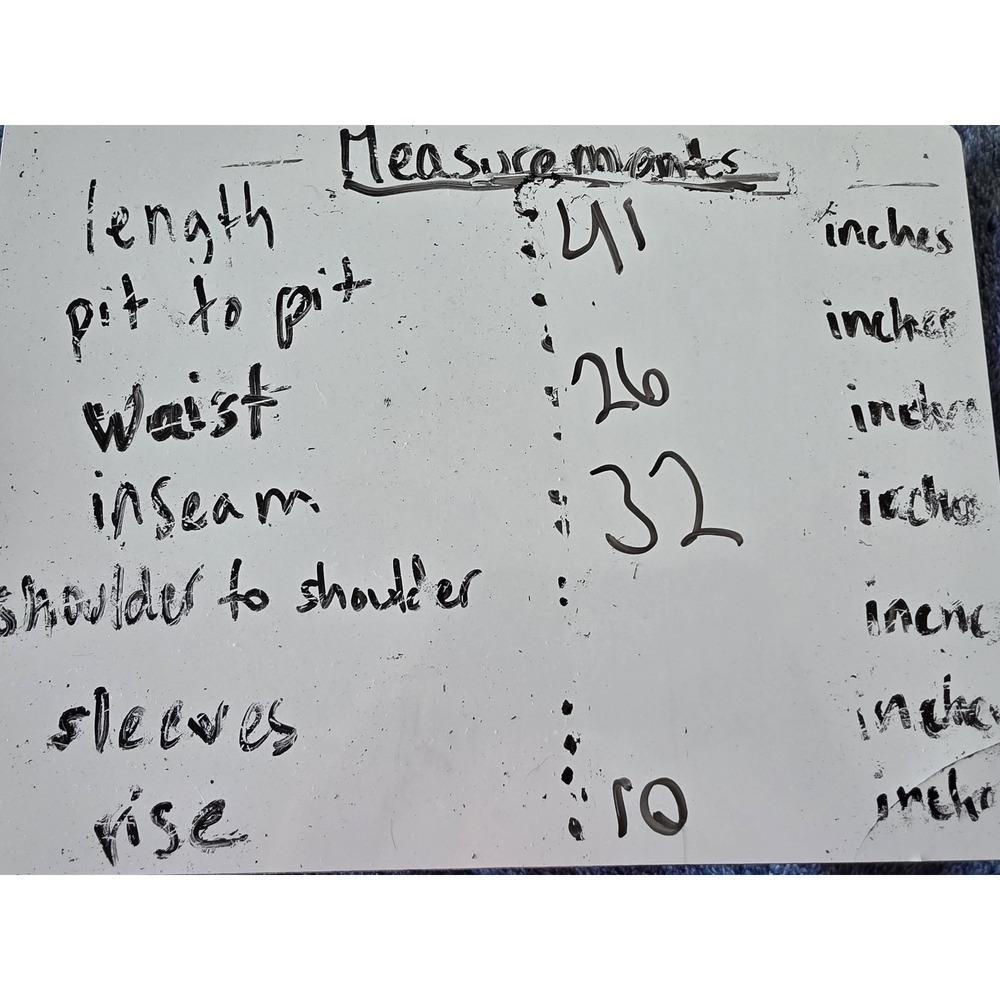 Measurements
length : 41 inches
pit to pit : inches
waist : 26 inches
inseam : 32 inches
shoulder to shoulder : inches
sleeves : inches
rise : 10 inches